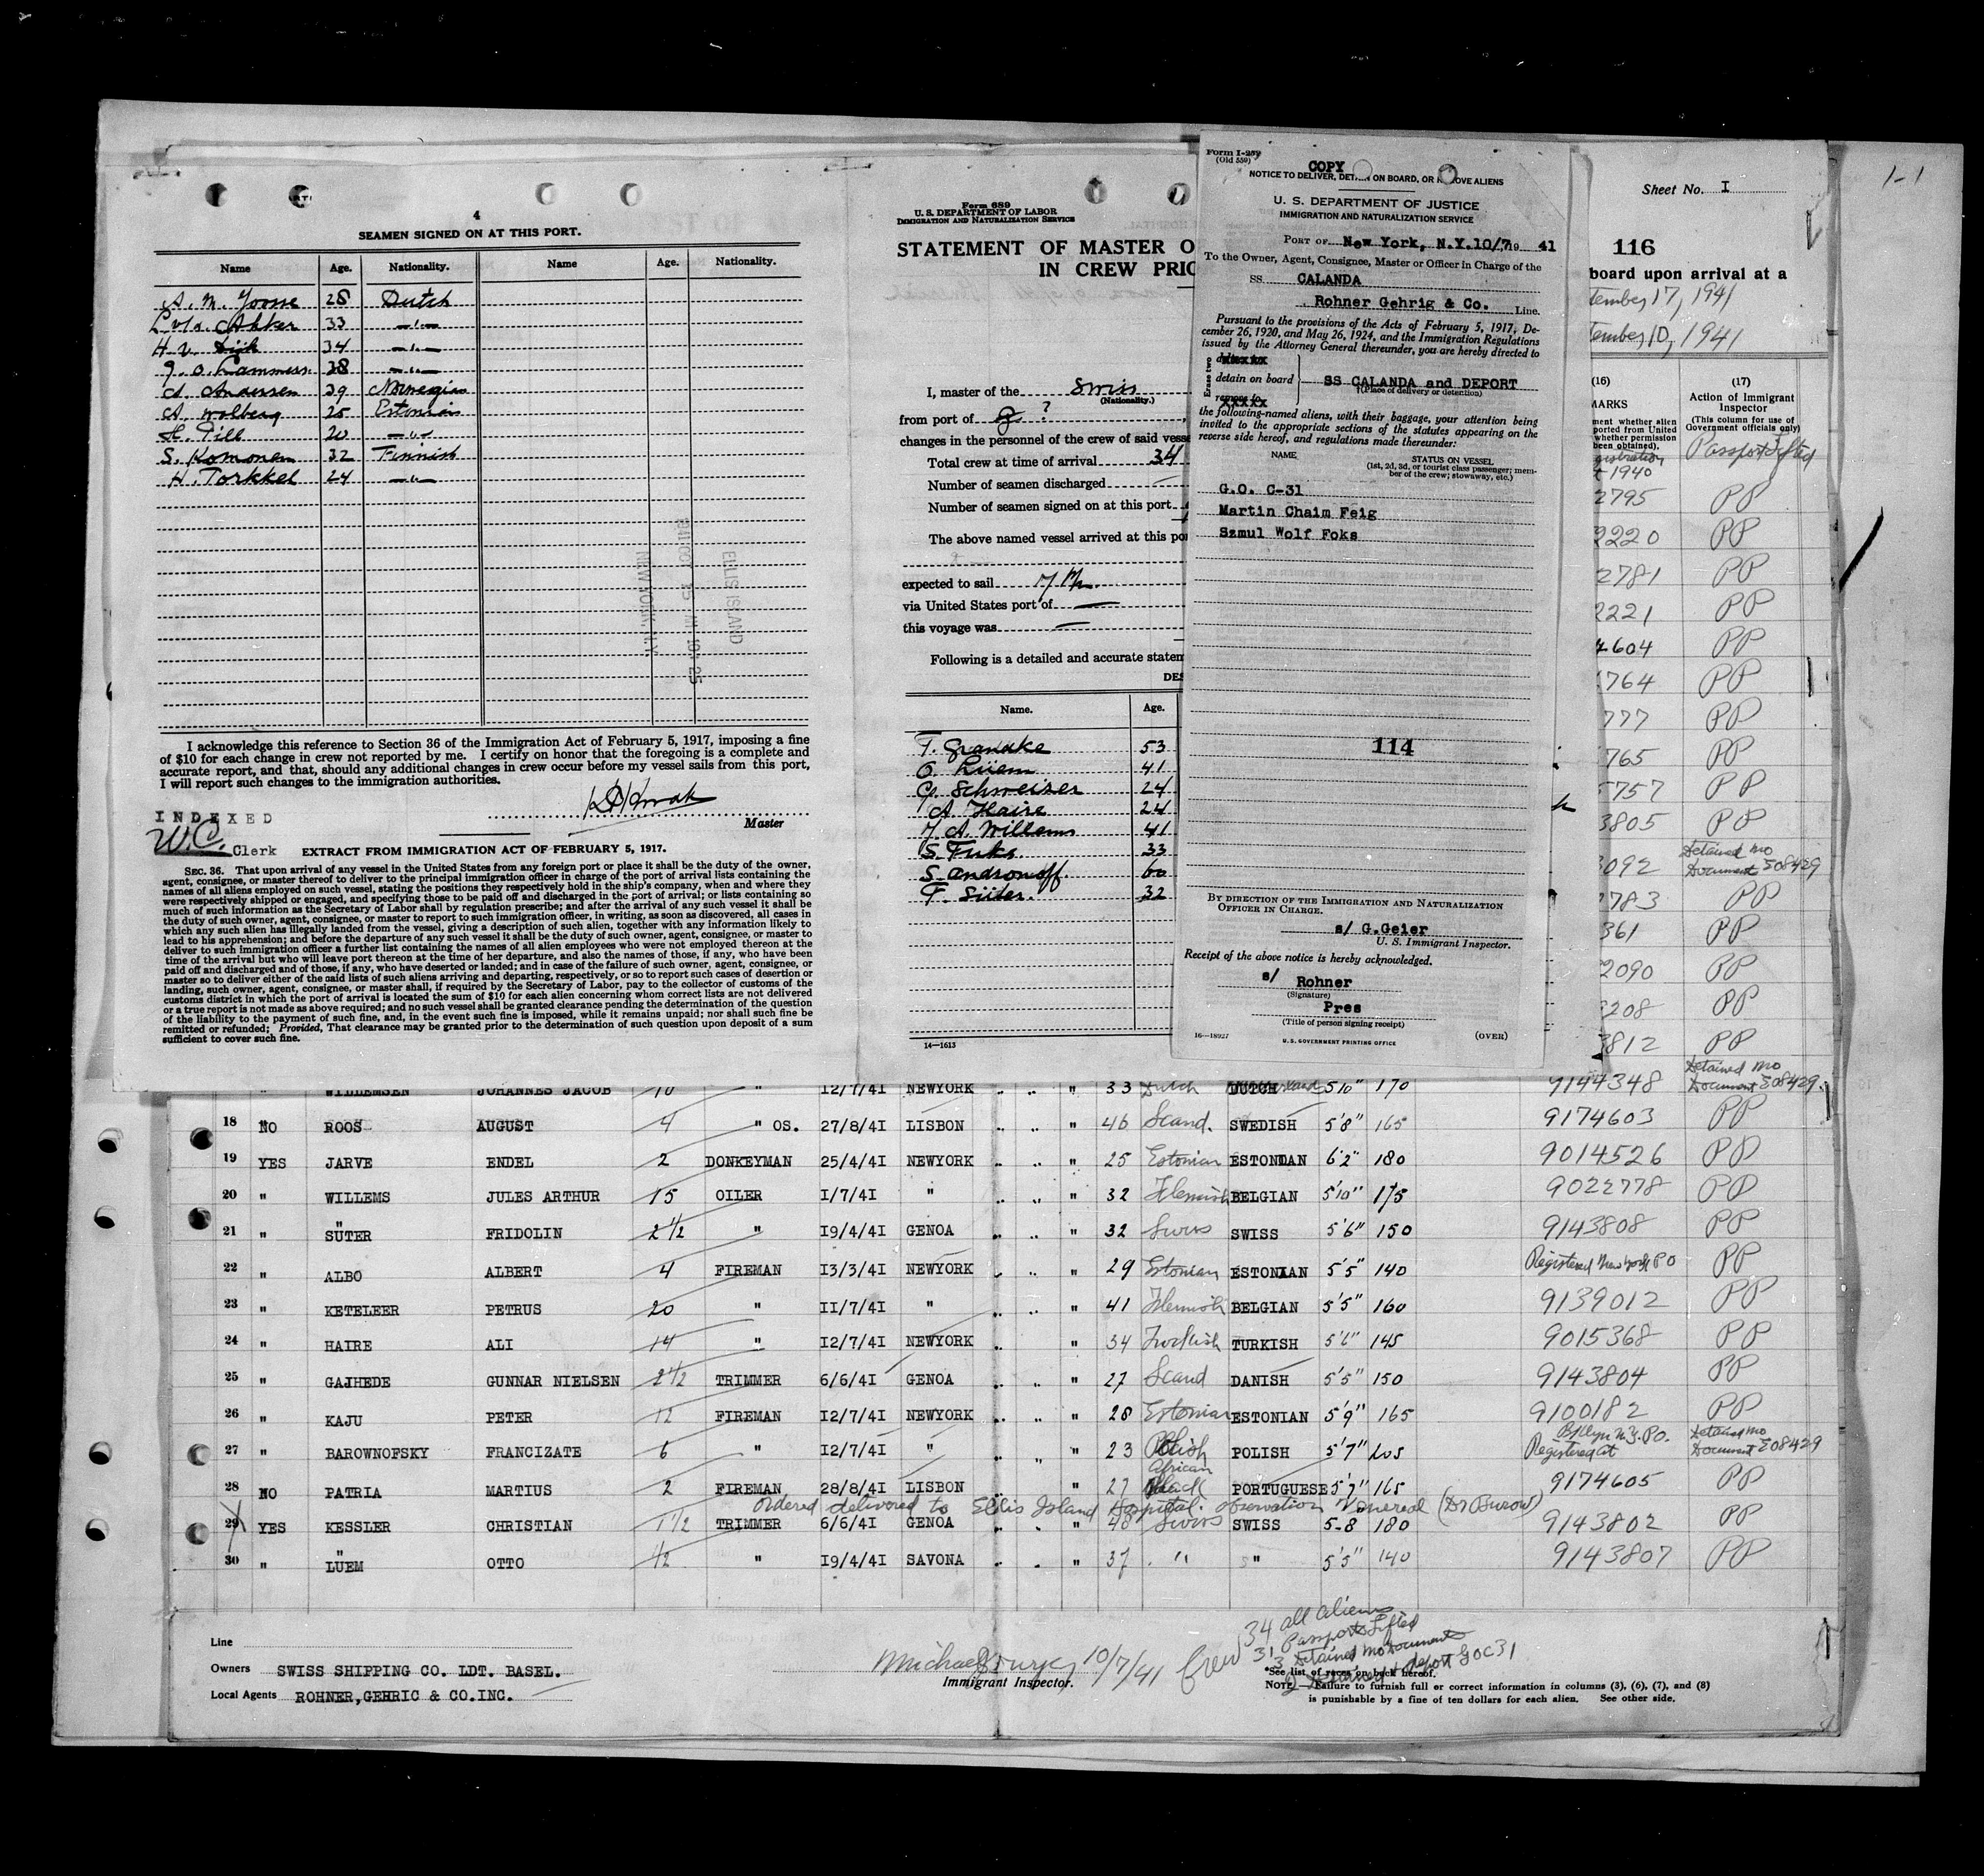 4
SEAMEN SIGNED ON AT THIS PORT.
Name Age. Nationality. Name Age. Nationality.
A. M. Joosse 28 Dutch
33 —"—
H v. Dijk 34 —"—
—"—
A. Andersen 39 Norwegian
A. Wolberg 25 Estonian
H. Pill 20 —"—
S. Komonen 32 Finnish
H. Torkkel 24 —"—
ELLIS ISLAND
NEW YORK, N.Y.
I acknowledge this reference to Section 36 of the Immigration Act of February 5, 1917, imposing a fine
of $10 for each change in crew not reported by me. I certify on honor that the foregoing is a complete and
accurate report, and that, should any additional changes in crew occur before my vessel sails from this port,
I will report such changes to the immigration authorities.
Master
INDEXED
W.C. Clerk
EXTRACT FROM IMMIGRATION ACT OF FEBRUARY 5, 1917.
SEC. 36. That upon arrival of any vessel in the United States from any foreign port or place it shall be the duty of the owner,
agent, consignee, or master thereof to deliver to the principal immigration officer in charge of the port of arrival lists containing the
names of all aliens employed on such vessel, stating the positions they respectively hold in the ship's company, when and where they
were respectively shipped or engaged, and specifying those to be paid off and discharged in the port of arrival; or lists containing so
much of such information as the Secretary of Labor shall by regulation prescribe; and after the arrival of any such vessel it shall be
the duty of such owner, agent, consignee, or master to report to such immigration officer, in writing, as soon as discovered, all cases in
which any such alien has illegally landed from the vessel, giving a description of such alien, together with any information likely to
lead to his apprehension; and before the departure of any such vessel it shall be the duty of such owner, agent, consignee, or master to
deliver to such immigration officer a further list containing the names of all alien employees who were not employed thereon at the
time of the arrival but who will leave port thereon at the time of her departure, and also the names of those, if any, who have been
paid off and discharged and of those, if any, who have deserted or landed; and in case of the failure of such owner, agent, consignee, or
master so to deliver either of the said lists of such aliens arriving and departing, respectively, or so to report such cases of desertion or
landing, such owner, agent, consignee, or master shall, if required by the Secretary of Labor, pay to the collector of customs of the
customs district in which the port of arrival is located the sum of $10 for each alien concerning whom correct lists are not delivered
or a true report is not made as above required; and no such vessel shall be granted clearance pending the determination of the question
of the liability to the payment of such fine, and, in the event such fine is imposed, while it remains unpaid; nor shall such fine be
remitted or refunded; Provided, That clearance may be granted prior to the determination of such question upon deposit of a sum
sufficient to cover such fine.
Form 689
U. S. DEPARTMENT OF LABOR
IMMIGRATION AND NATURALIZATION SERVICE
STATEMENT OF MASTER O
IN CREW PRIO
I, master of the Swiss
(Nationality.)
from port of ?
changes in the personnel of the crew of said vesse
Total crew at time of arrival 34
Number of seamen discharged
Number of seamen signed on at this port
The above named vessel arrived at this po
expected to sail
via United States port of —
this voyage was —
Following is a detailed and accurate statem
DES
Name. Age.
53
O. Lüem 41
G. Schweizer 24
A. Haire 24
J. A. Willems 41
S. Fuks 33
S. Andronoff. 60
F. Süter. 32
14—1613
Form I-259
(Old 559)
COPY
NOTICE TO DELIVER, DET ON BOARD, OR REMOVE ALIENS
U. S. DEPARTMENT OF JUSTICE
IMMIGRATION AND NATURALIZATION SERVICE
PORT OF New York, N.Y. 10/7 19 41
To the Owner, Agent, Consignee, Master or Officer in Charge of the
SS CALANDA
Rohner Gehrig & Co. Line.
Pursuant to the provisions of the Acts of February 5, 1917, De-
cember 26, 1920, and May 26, 1924, and the Immigration Regulations
issued by the Attorney General thereunder, you are hereby directed to
Erase two
xxxxxx
detain on board SS CALANDA and DEPORT
(Place of delivery or detention)
remove to xxxxx
the following-named aliens, with their baggage, your attention being
invited to the appropriate sections of the statutes appearing on the
reverse side hereof, and regulations made thereunder:
NAME STATUS ON VESSEL
(1st, 2d, 3d, or tourist class passenger; mem-
ber of the crew; stowaway, etc.)
G.O. C-31
Martin Chaim Feig
Szmul Wolf Foks
114
BY DIRECTION OF THE IMMIGRATION AND NATURALIZATION
OFFICER IN CHARGE.
s/ G.Geier
U. S. Immigrant Inspector.
Receipt of the above notice is hereby acknowledged.
s/ Rohner
(Signature)
Pres
(Title of person signing receipt)
16—18927 U. S. GOVERNMENT PRINTING OFFICE (OVER)
Sheet No. I
1-1
116
board upon arrival at a
tember 17, 1941
tember 10, 1941
(16) (17)
MARKS Action of Immigrant
Inspector
(This column for use of
Government officials only)
ment whether alien
ported from United
whether permission
been obtained).
gistration
t 1940 Passport Lifted
2795 PP
2220 PP
2781 PP
2221 PP
4604 PP
764 PP
777 PP
765 PP
5757 PP
3805 PP
3092 Detained no Document E08429
2783 PP
361 PP
2090 PP
208 PP
3812 PP
" WILLEMSEN JOHANNES JACOB 10 " 12/7/41 NEWYORK " " " 33 Dutch DUTCH 5'10" 170 9144348 Detained no Document E08429.
18 NO ROOS AUGUST 4 " OS. 27/8/41 LISBON " " " 46 Scand. SWEDISH 5'8" 165 9174603 PP
19 YES JARVE ENDEL 2 DONKEYMAN 25/4/41 NEWYORK " " " 25 Estonian ESTONIAN 6'2" 180 9014526 PP
20 " WILLEMS JULES ARTHUR 15 OILER I/7/41 " " " " 32 Flemish BELGIAN 5'10" 175 9022778 PP
21 " SÜTER FRIDOLIN 2 1/2 " I9/4/41 GENOA " " " 32 Swiss SWISS 5'6" 150 9143808 PP
22 " ALBO ALBERT 4 FIREMAN I3/3/41 NEWYORK " " " 29 Estonian ESTONIAN 5'5" 140 Registered New York PO PP
23 " KETELEER PETRUS 20 " II/7/41 " " " " 41 Flemish BELGIAN 5'5" 160 9139012 PP
24 " HAIRE ALI 14 " I2/7/41 NEWYORK " " " 34 Turkish TURKISH 5'6" 145 9015368 PP
25 " GAJHEDE GUNNAR NIELSEN 2 1/2 TRIMMER 6/6/41 GENOA " " " 27 Scand DANISH 5'5" 150 9143804 PP
26 " KAJU PETER 12 FIREMAN I2/7/41 NEWYORK " " " 28 Estonian ESTONIAN 5'9" 165 9100182 PP
27 " BAROWNOFSKY FRANCIZATE 6 " I2/7/41 " " " 23 Polish POLISH 5'7" 205 Registered at Bklyn N.Y. P.O. Detained no Document E08429
28 NO PATRIA MARTIUS 2 FIREMAN 28/8/41 LISBON " 27 African Black PORTUGUESE 5'7" 165 9174605 PP
Ordered delivered to Ellis Island Hospital observation Venereal (Dr Burow)
29 YES KESSLER CHRISTIAN 1 1/2 TRIMMER 6/6/41 GENOA " " " 48 Swiss SWISS 5-8 180 9143802 PP
30 " LÜEM OTTO 1/2 " I9/4/41 SAVONA " " " 37 " " 5'5" 140 9143807 PP
Line
Owners SWISS SHIPPING CO. LDT. BASEL.
Local Agents ROHNER,GEHRIC & CO.INC.
10/7/41
Immigrant Inspector.
Crew 34 all aliens
31 Passports Lifted
3 Detained no Documents
2 Detained & deport GOC31
*See list of races on back hereof.
NOTE.—Failure to furnish full or correct information in columns (3), (6), (7), and (8)
is punishable by a fine of ten dollars for each alien. See other side.